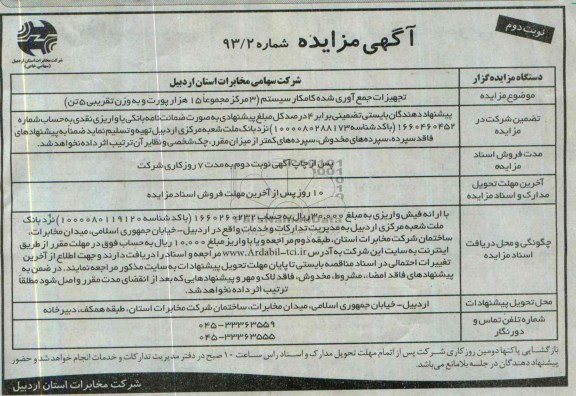 نوبت دوم
آگهی مزایده شماره ۹۳/۲
شرکت مخابرات استان اردبیل
(سهامی خاص)
دستگاه مزایده گزار
شرکت سهامی مخابرات استان اردبیل
موضوع مزایده
تجهیزات جمع آوری شده کامکار سیستم (۳ مرکز مجموعاً ۱۵ هزار پورت و به وزن تقریبی ۵ تن)
تضمین شرکت در
مزایده
پیشنهاد دهندگان بایستی تضمینی برابر ۲ درصد کل مبلغ پیشنهادی به صورت ضمانت نامه بانکی یا واریز نقدی به حساب شماره
۱۶۶۰۴۶۰۴۵۲ (با کد شناسه ۱۰۰۰۰۸۰۲۸۸۱۷۳) نزد بانک ملت شعبه مرکزی اردبیل تهیه و تسلیم نماید ضمناً به پیشنهادهای
فاقد سپرده، سپرده های مخدوش، سپرده های کمتر از میزان مقرر، چک شخصی و نظایر آن ترتیب اثر داده نخواهد شد.
مدت فروش اسناد
مزایده
پس از چاپ آگهی نوبت دوم به مدت ۷ روز کاری شرکت
آخرین مهلت تحویل
مدارک و اسناد مزایده
۱۰ روز پس از آخرین مهلت فروش اسناد مزایده
چگونگی و محل دریافت
اسناد مزایده
با ارائه فیش واریزی به مبلغ ۳۰,۰۰۰ ریال به حساب ۱۶۶۰۲۶۰۲۳۲ (با کد شناسه ۱۰۰۰۰۸۰۱۱۹۱۲۰) نزد بانک
ملت شعبه مرکزی اردبیل به مدیریت تدارکات و خدمات واقع در اردبیل - خیابان جمهوری اسلامی، میدان مخابرات،
ساختمان شرکت مخابرات استان، طبقه دوم مراجعه و یا با واریز مبلغ ۱۰,۰۰۰ ریال به حساب فوق در مهلت مقرر از طریق
اینترنت به سایت این شرکت به آدرس www.Ardabil-tci.ir مراجعه و اسناد را دریافت دارند و جهت اطلاع از آخرین
تغییرات احتمالی در اسناد مناقصه بایستی تا پایان مهلت تحویل پیشنهادات به سایت مذکور مراجعه نمایند. در ضمن به
پیشنهادهای فاقد امضاء، مشروط، مخدوش، فاقد لاک و مهر و پیشنهادهایی که بعد از انقضای مدت مقرر واصل شود مطلقاً
ترتیب اثر داده نخواهد شد.
محل تحویل پیشنهادات
اردبیل - خیابان جمهوری اسلامی، میدان مخابرات، ساختمان شرکت مخابرات استان، طبقه همکف، دبیرخانه
شماره تلفن تماس و
دورنگار
۰۴۵-۳۳۳۶۳۵۵۹
۰۴۵-۳۳۳۶۳۵۵۵
بازگشایی پاکتها دومین روز کاری شرکت پس از اتمام مهلت تحویل مدارک و اسناد راس ساعت ۱۰ صبح در دفتر مدیریت تدارکات و خدمات انجام خواهد شد و حضور
پیشنهاد دهندگان در جلسه بلامانع می باشد.
شرکت مخابرات استان اردبیل